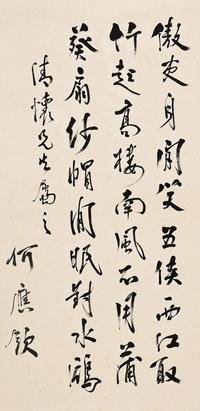 傲吏身閒笑五侯西江取
竹起高樓南風不用蒲
葵扇紗帽閒眠對水鷗
清懷先生屬之
何應欽